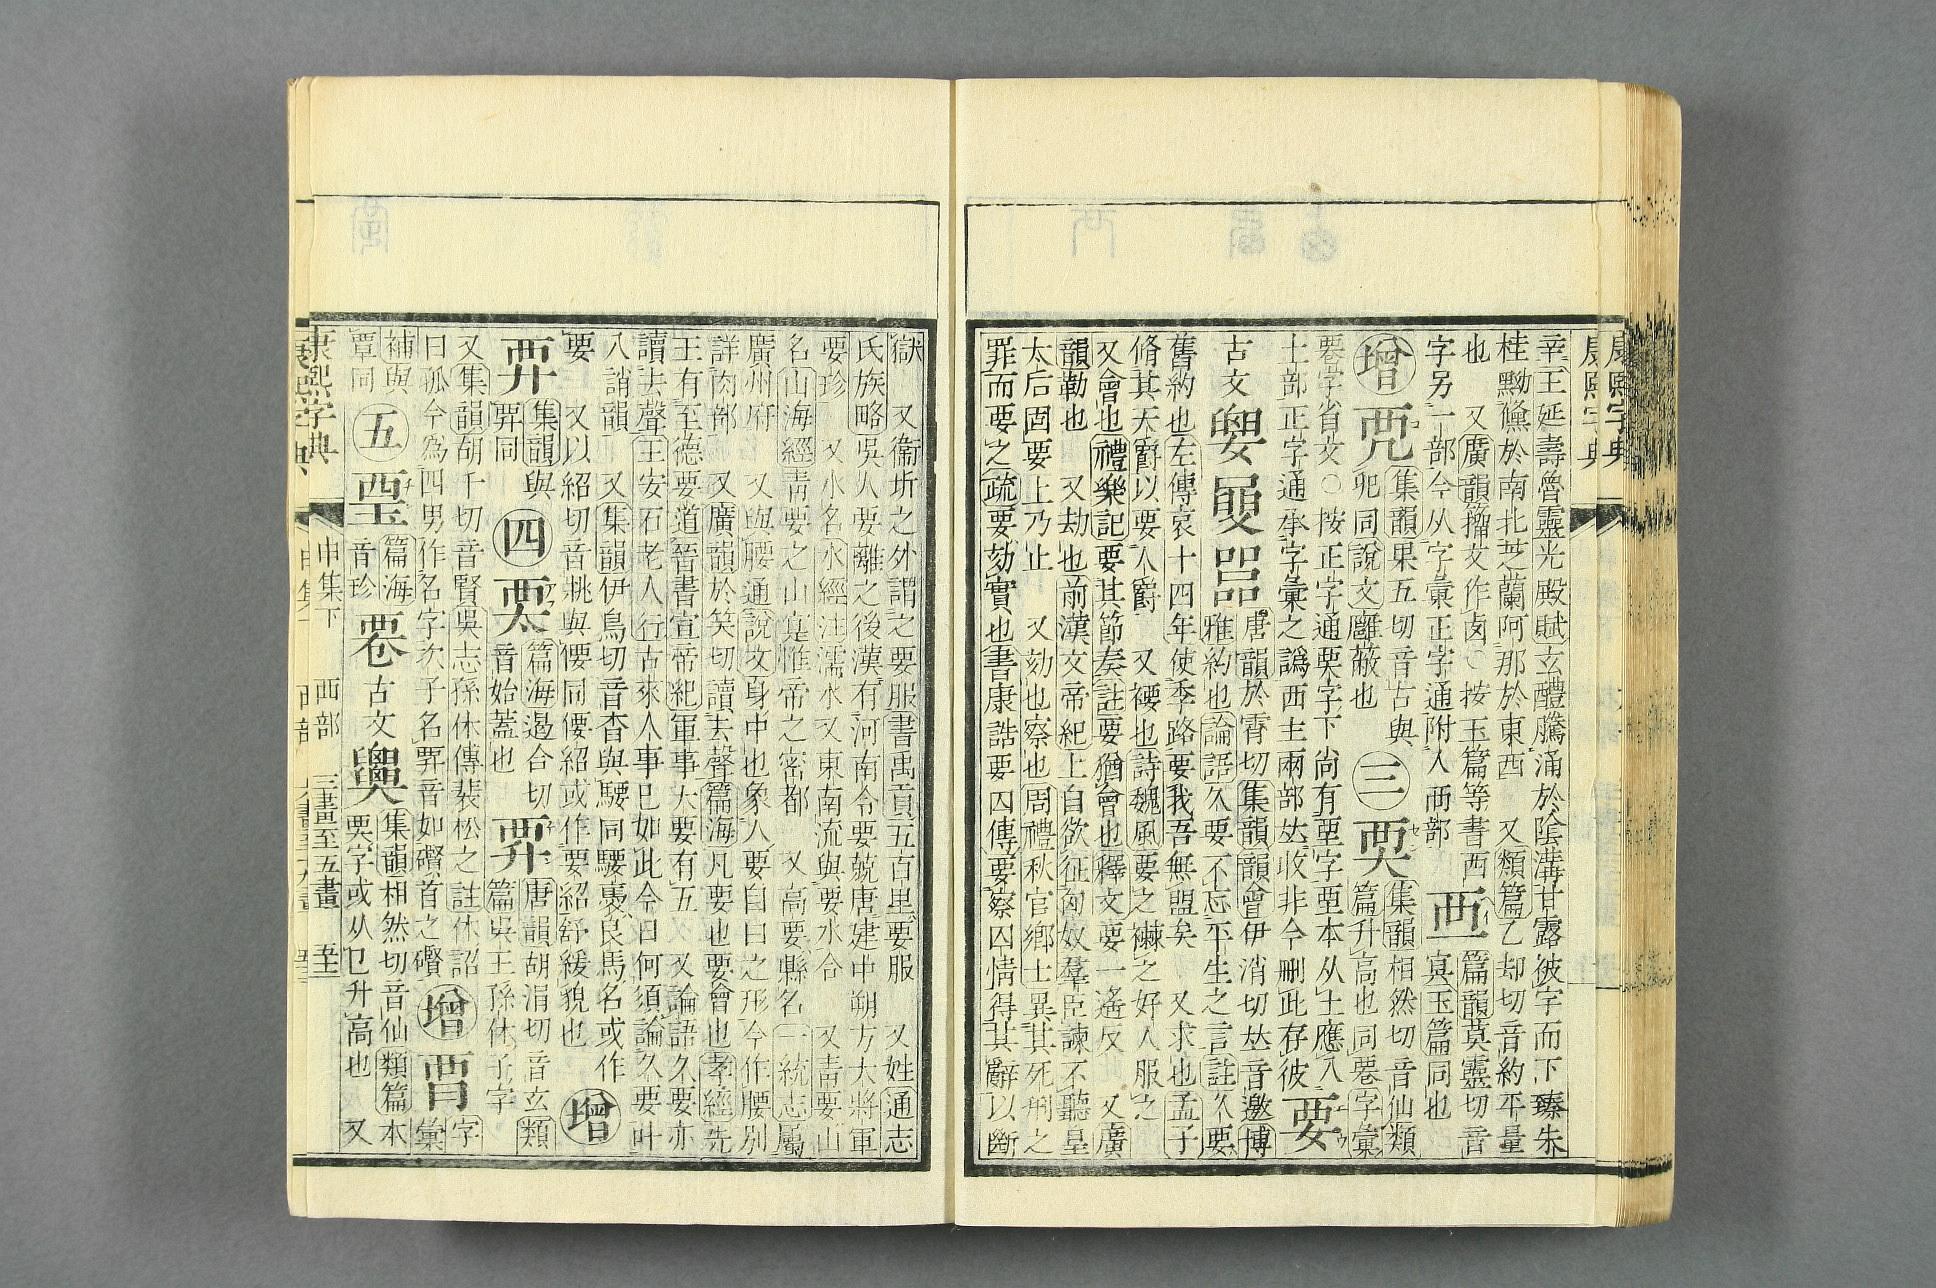 康熙字典
幸王延壽魯靈光殿賦玄醴騰涌於陰溝甘露彼宇而下臻朱
桂黝儵於南北芝蘭阿那於東西 又類篇乙却切音約平量
也 又廣韻籀文作卤○按玉篇等書西 篇韻莫靈切音
字另一部今从字彙正字通附入襾部 襾 寘玉篇同也
增 𠒅 集韻果五切音古與 三 䙴 集韻相然切音仙類
兜同說文廱蔽也 篇升高也同䙴字彙
䙴字省文○按正字通栗字下尚有垔字垔本从土應入
土部正字通承字彙之譌西土兩部𠀤收非今刪此存彼 要
古文 唐韻於霄切集韻韻會伊消切𠀤音邀博
雅約也論語久要不忘平生之言註久要
舊約也左傳哀十四年使季路要我吾無盟矣 又求也孟子
脩其天爵以要人爵 又褄也詩魏風要之襋之好人服之
又會也禮樂記要其節奏註要猶會也釋文要一遙反 又廣
韻勒也 又劫也前漢文帝紀上自欲征匈奴羣臣諫不聽皇
太后固要上乃止 又劾也察也周禮秋官鄉士異其死刑之
罪而要之疏要劾實也書康誥要囚傳要察囚情得其辭以斷
獄 又衞圻之外謂之要服書禹貢五百里要服 又姓通志
氏族略吳人要離之後漢有河南令要兢唐建中朔方大將軍
要珍 又水名水經注濡水又東南流與要水合 又靑要山
名山海經靑要之山寔惟帝之密都 又高要縣名一統志屬
廣州府 又與腰通說文身中也象人要自臼之形今作腰別
詳肉部 又廣韻於笑切讀去聲篇海凡要也要會也孝經先
王有至德要道晉書宣帝紀軍事大要有五 又論語久要亦
讀去聲王安石老人行古來人事已如此今日何須論久要叶
八誚韻 又集韻伊鳥切音杳與騕同騕褭良馬名或作
要 又以紹切音𣂁與偠同偠紹或作要紹舒緩貌也 增
䍐 集韻與 四 篇海遏合切 唐韻胡涓切音玄類
罪同 音始蓋也 篇吳王孫休子字
又集韻胡千切音賢吳志孫休傳裴松之註休詔
曰孤今爲四男作名字次子名䍐音如礥首之礥 增 字
補與 五 篇海 䙴 古文 集韻相然切音仙類篇本
覃同 音珍 䙴字或从㔾升高也 又
康熙字典 申集下 西部 三畫至五畫